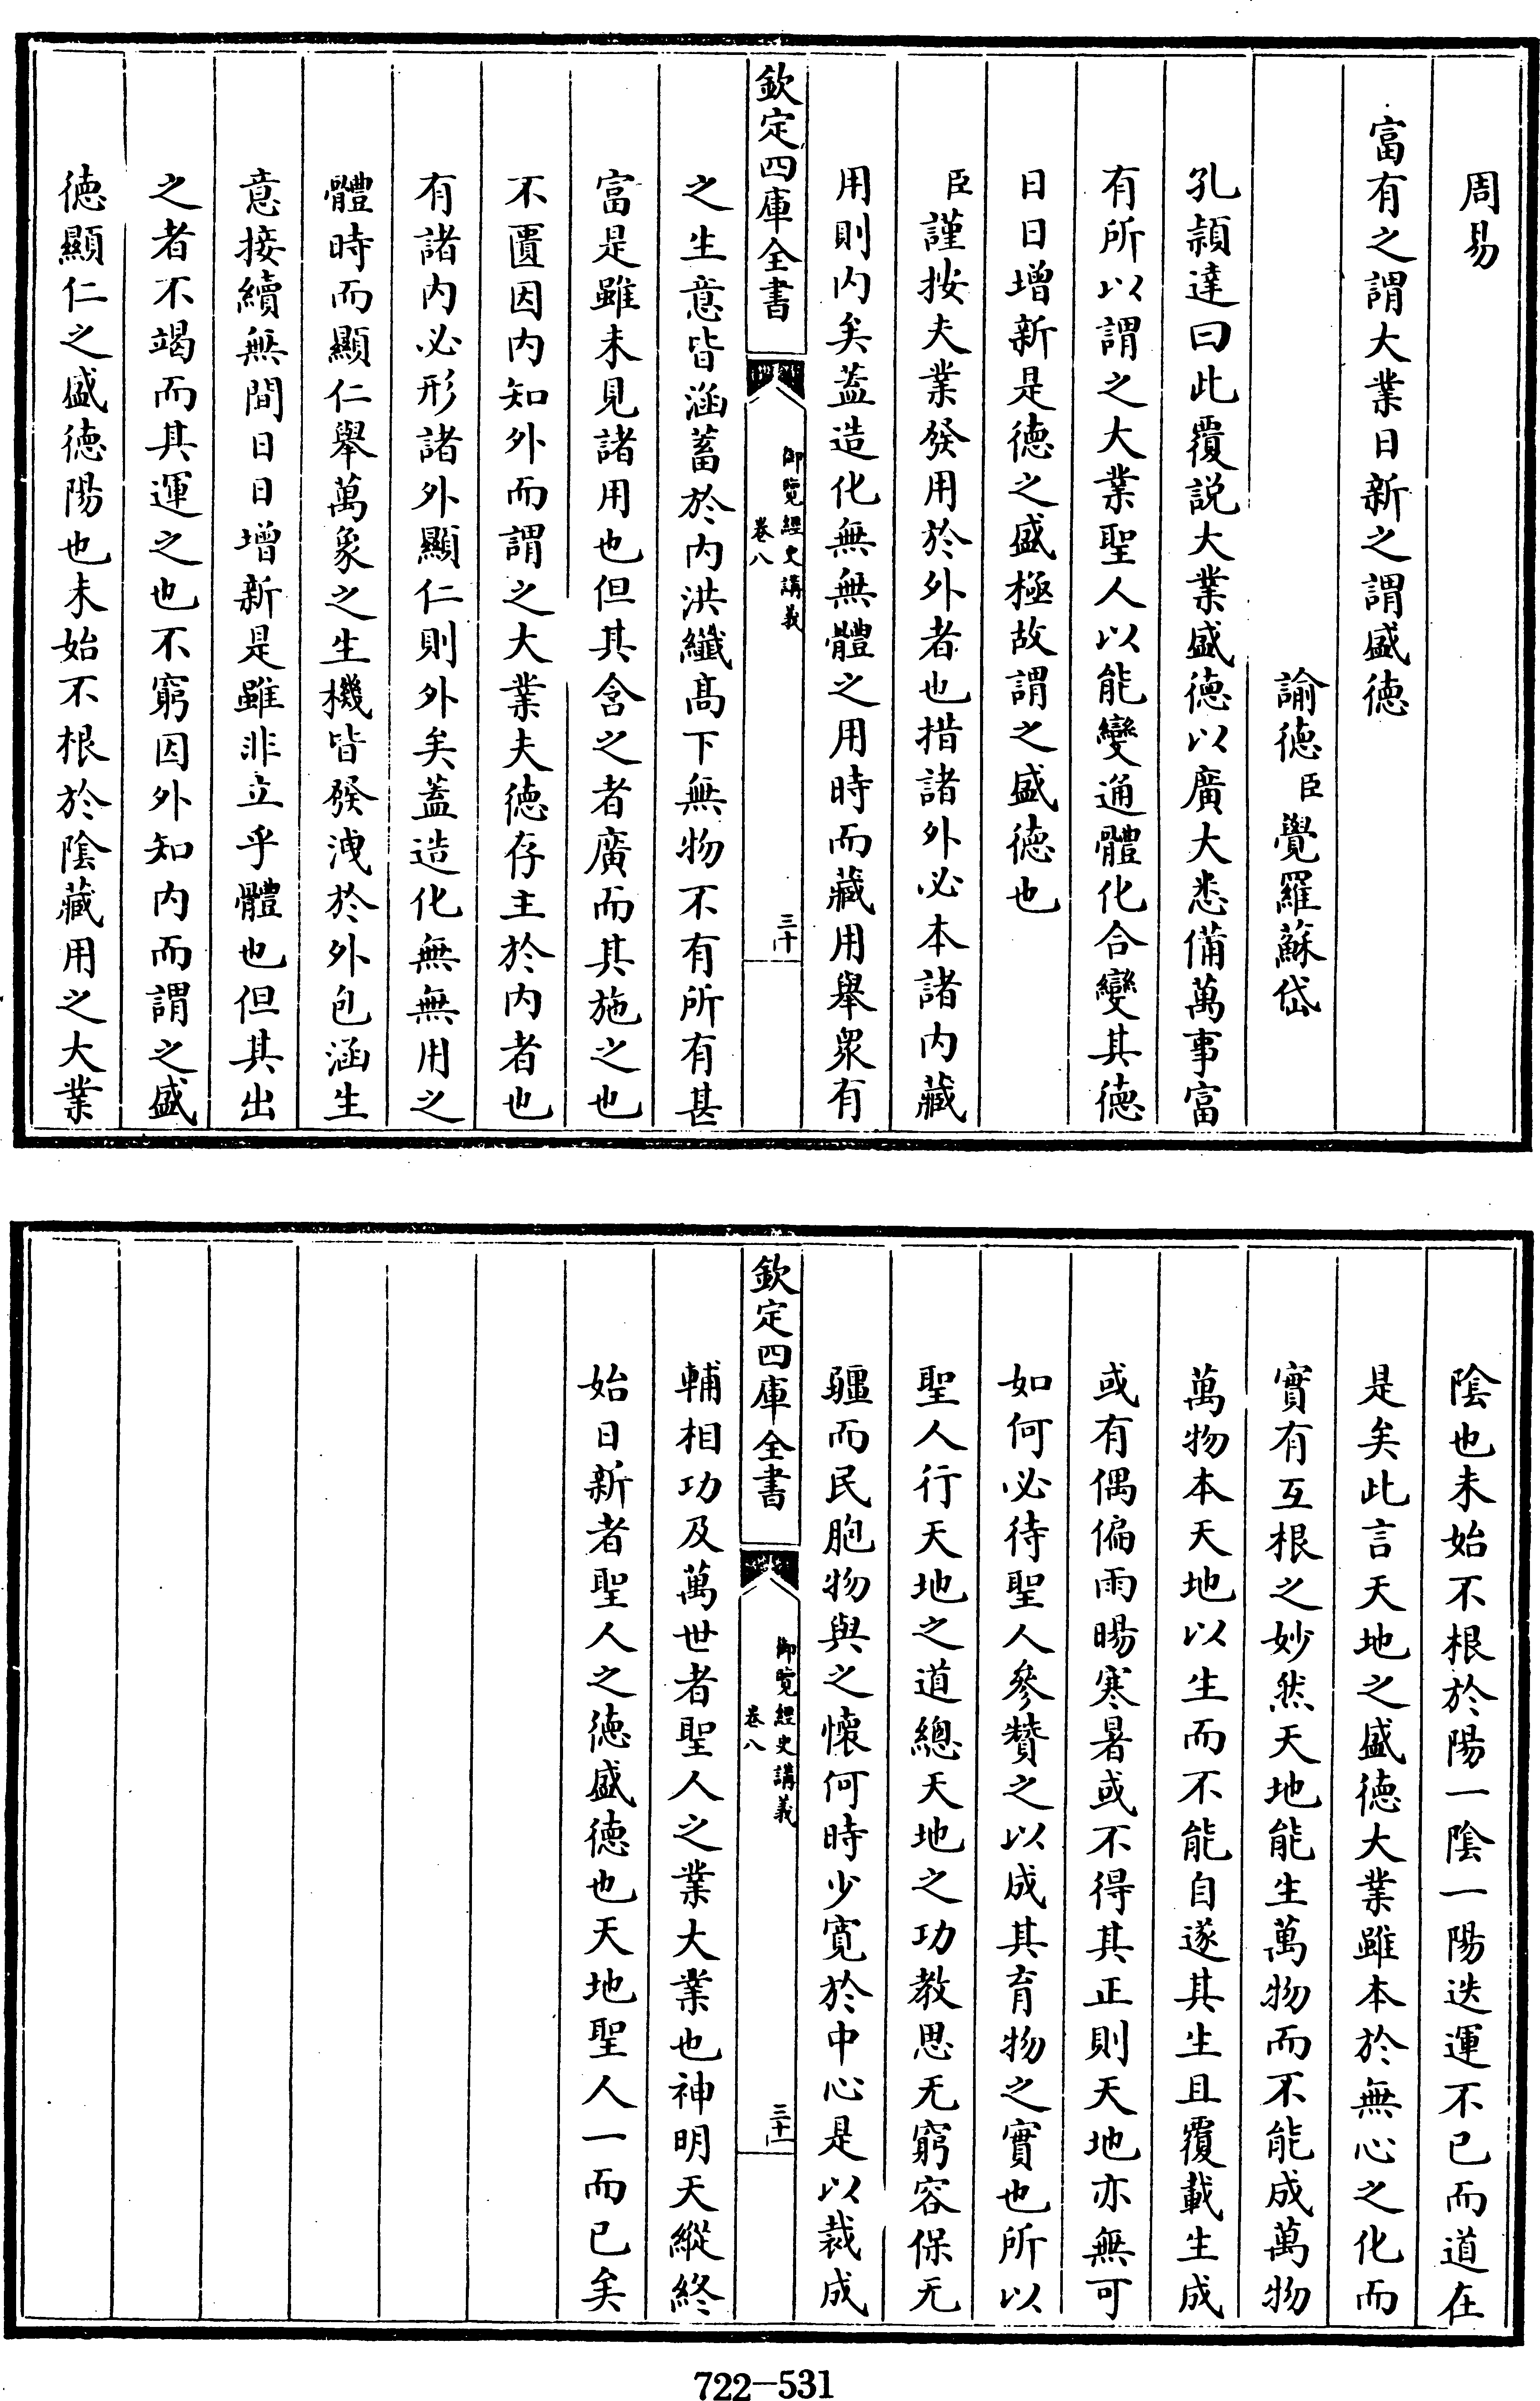 周易
富有之謂大業日新之謂盛徳
諭徳臣覺羅蘇岱
孔穎達曰此覆説大業盛徳以廣大悉備萬事富
有所以謂之大業聖人以能變通體化合變其徳
日日增新是徳之盛極故謂之盛徳也
臣謹按夫業發用於外者也措諸外必本諸内藏
用則内矣葢造化無無體之用時而藏用舉衆有
欽定四庫全書
御覽經史講義
卷八
三十
之生意皆涵蓄於内洪纎髙下無物不有所有甚
富是雖未見諸用也但其含之者廣而其施之也
不匱因内知外而謂之大業夫徳存主於内者也
有諸内必形諸外顯仁則外矣葢造化無無用之
體時而顯仁舉萬象之生機皆發洩於外包涵生
意接續無間日日增新是雖非立乎體也但其出
之者不竭而其運之也不窮因外知内而謂之盛
徳顯仁之盛徳陽也未始不根於陰藏用之大業
陰也未始不根於陽一陰一陽迭運不已而道在
是矣此言天地之盛徳大業雖本於無心之化而
實有互根之妙然天地能生萬物而不能成萬物
萬物本天地以生而不能自遂其生且覆載生成
或有偶偏雨暘寒暑或不得其正則天地亦無可
如何必待聖人參贊之以成其育物之實也所以
聖人行天地之道總天地之功教思无窮容保无
疆而民胞物與之懷何時少寛於中心是以裁成
欽定四庫全書
御覽經史講義
卷八
三十一
輔相功及萬世者聖人之業大業也神明天縱終
始日新者聖人之徳盛徳也天地聖人一而已矣
722-531